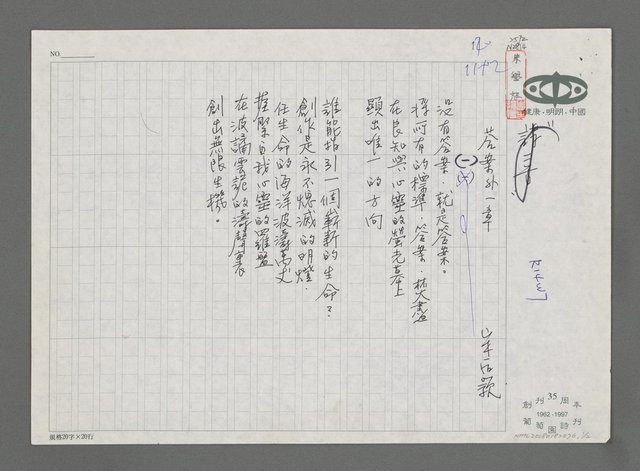 NO.
健康·明朗·中國
答案外一章
(一)
沒有答案，就是答案。
將所有的標準，答案，焚盡
在良知與心靈的螢光幕上
顯出唯一的方向
誰能指引一個嶄新的生命？
創作是永不熄滅的明燈，
任生命的海洋波濤萬丈
握緊自我心靈的羅盤
在波譎雲詭的濤聲裏
創出無限生機。
創刊35周年
1962-1997
葡萄園詩刊
規格20字×20行